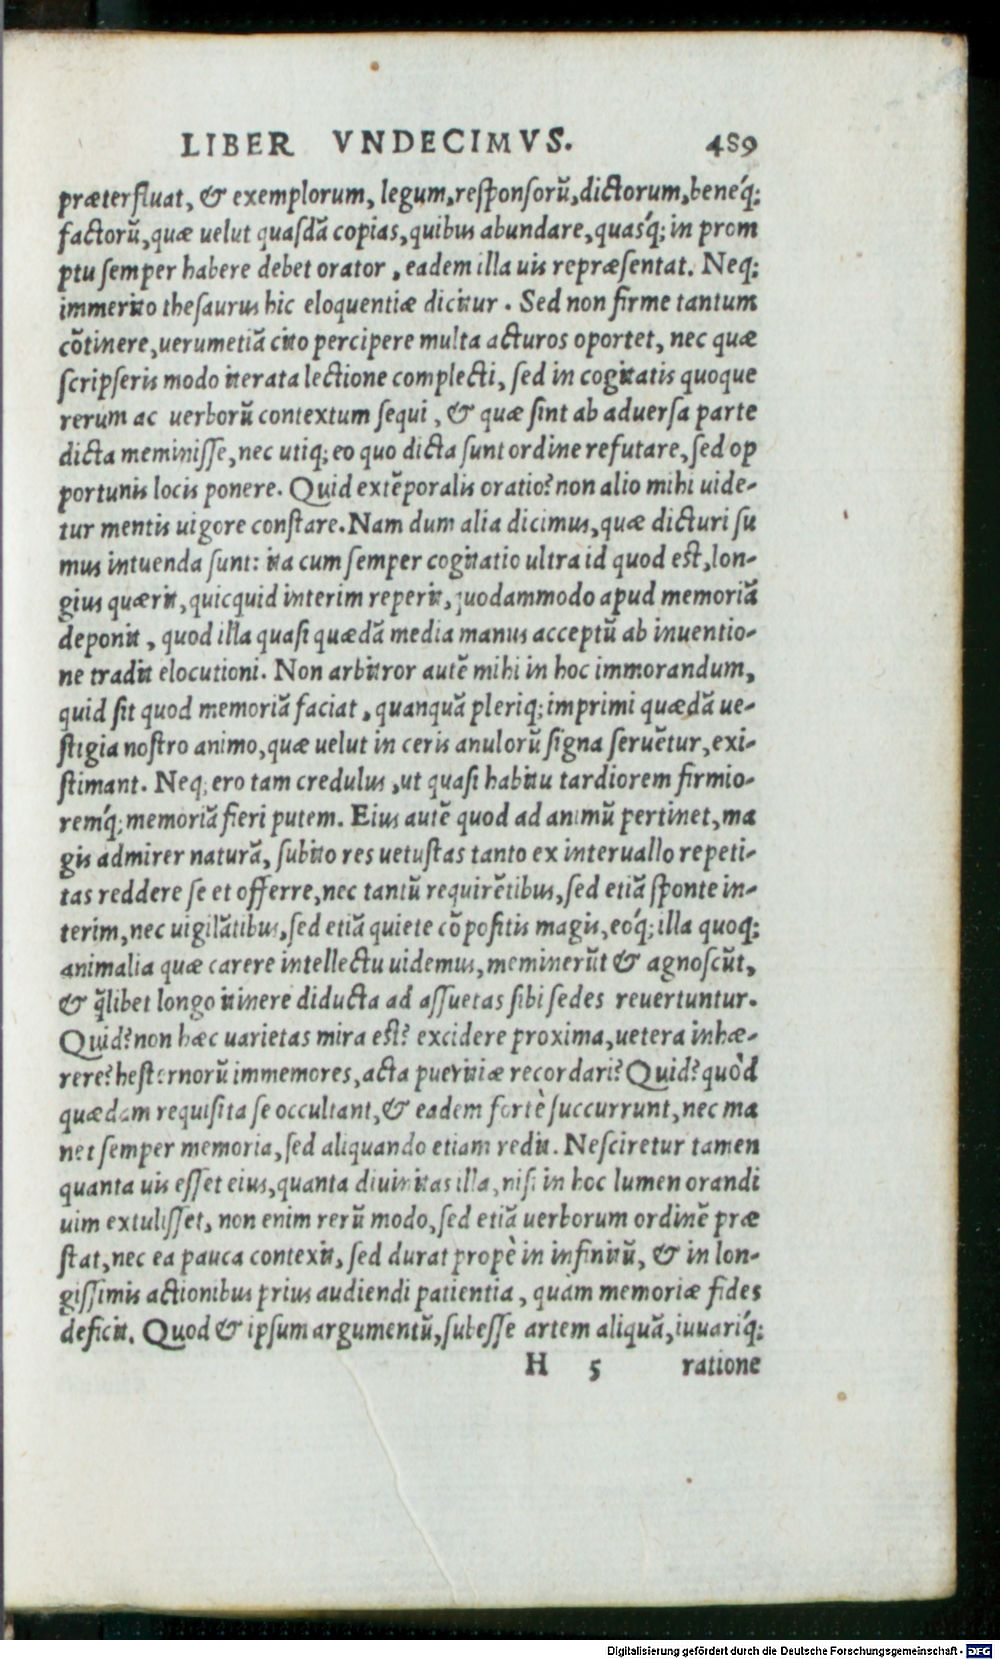 LIBER VNDECIMVS. 489
præterfluat, & exemplorum, legum, responsorū, dictorum, beneq́;
factorū, quæ uelut quasdā copias, quibus abundare, quasq́; in prom
ptu semper habere debet orator, eadem illa uis repræsentat. Neq;
immerito thesaurus hic eloquentiæ dicitur. Sed non firme tantum
cōtinere, uerumetiā cito percipere multa acturos oportet, nec quæ
scripseris modo iterata lectione complecti, sed in cogitatis quoque
rerum ac uerborū contextum sequi, & quæ sint ab aduersa parte
dicta meminisse, nec utiq; eo quo dicta sunt ordine refutare, sed op
portunis locis ponere. Quid extēporalis oratio? non alio mihi uide-
tur mentis uigore constare. Nam dum alia dicimus, quæ dicturi su
mus intuenda sunt: ita cum semper cogitatio ultra id quod est, lon-
gius quærit, quicquid interim reperit, quodammodo apud memoriā
deponit, quod illa quasi quædā media manus acceptū ab inuentio-
ne tradit elocutioni. Non arbitror autē mihi in hoc immorandum,
quid sit quod memoriā faciat, quanquā pleriq; imprimi quædā ue-
stigia nostro animo, quæ uelut in ceris anulorū signa seruētur, exi-
stimant. Neq; ero tam credulus, ut quasi habitu tardiorem firmio-
remq́; memoriā fieri putem. Eius autē quod ad animū pertinet, ma
gis admirer naturā, subito res uetustas tanto ex interuallo repeti-
tas reddere se et offerre, nec tantū requirētibus, sed etiā sponte in-
terim, nec uigilātibus, sed etiā quiete cōpositis magis, eoq́; illa quoq;
animalia quæ carere intellectu uidemus, meminerūt & agnoscūt,
& q̄libet longo itinere diducta ad assuetas sibi sedes reuertuntur.
Quid? non hæc uarietas mira est? excidere proxima, uetera inhæ-
rere? hesternorū immemores, acta pueritiæ recordari? Quid? quòd
quædam requisita se occultant, & eadem fortè succurrunt, nec ma
net semper memoria, sed aliquando etiam redit. Nesciretur tamen
quanta uis esset eius, quanta diuinitas illa, nisi in hoc lumen orandi
uim extulisset, non enim rerū modo, sed etiā uerborum ordinē præ
stat, nec ea pauca contexit, sed durat propè in infinitū, & in lon-
gissimis actionibus prius audiendi patientia, quàm memoriæ fides
deficit. Quod & ipsum argumentū, subesse artem aliquā, iuuariq́;
H 5 ratione
Digitalisierung gefördert durch die Deutsche Forschungsgemeinschaft - DFG